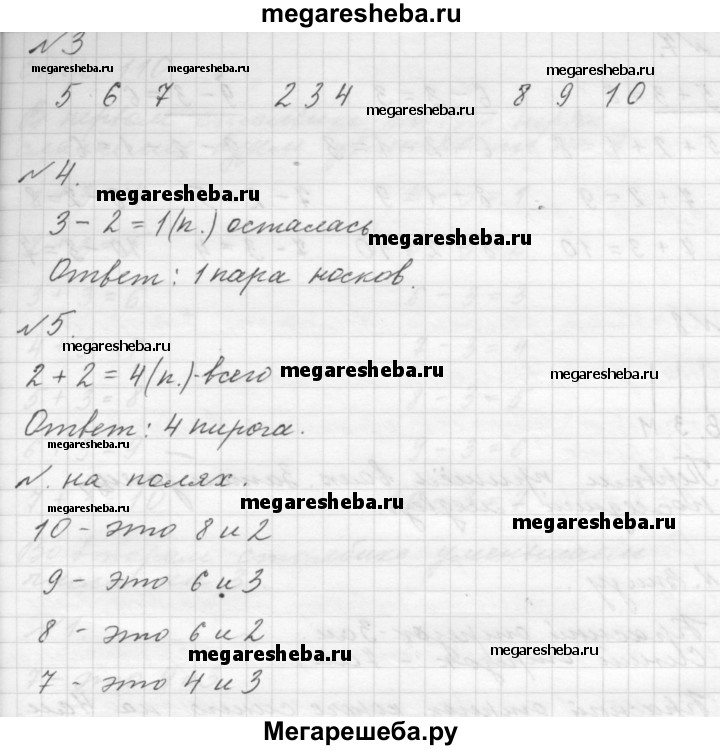 megaresheba.ru
№3
megaresheba.ru megaresheba.ru
5 6 7 2 3 4 8 9 10
megaresheba.ru
№4.
megaresheba.ru
3 - 2 = 1 (п.) осталась
megaresheba.ru
Ответ: 1 пара носков.
№5.
megaresheba.ru
2 + 2 = 4 (п.) - всего
megaresheba.ru megaresheba.ru
Ответ: 4 пирога.
megaresheba.ru
№. на полях.
megaresheba.ru megaresheba.ru
megaresheba.ru
10 - это 8 и 2
9 - это 6 и 3
8 - это 6 и 2
megaresheba.ru megaresheba.ru
7 - это 4 и 3
Мегарешеба.ру